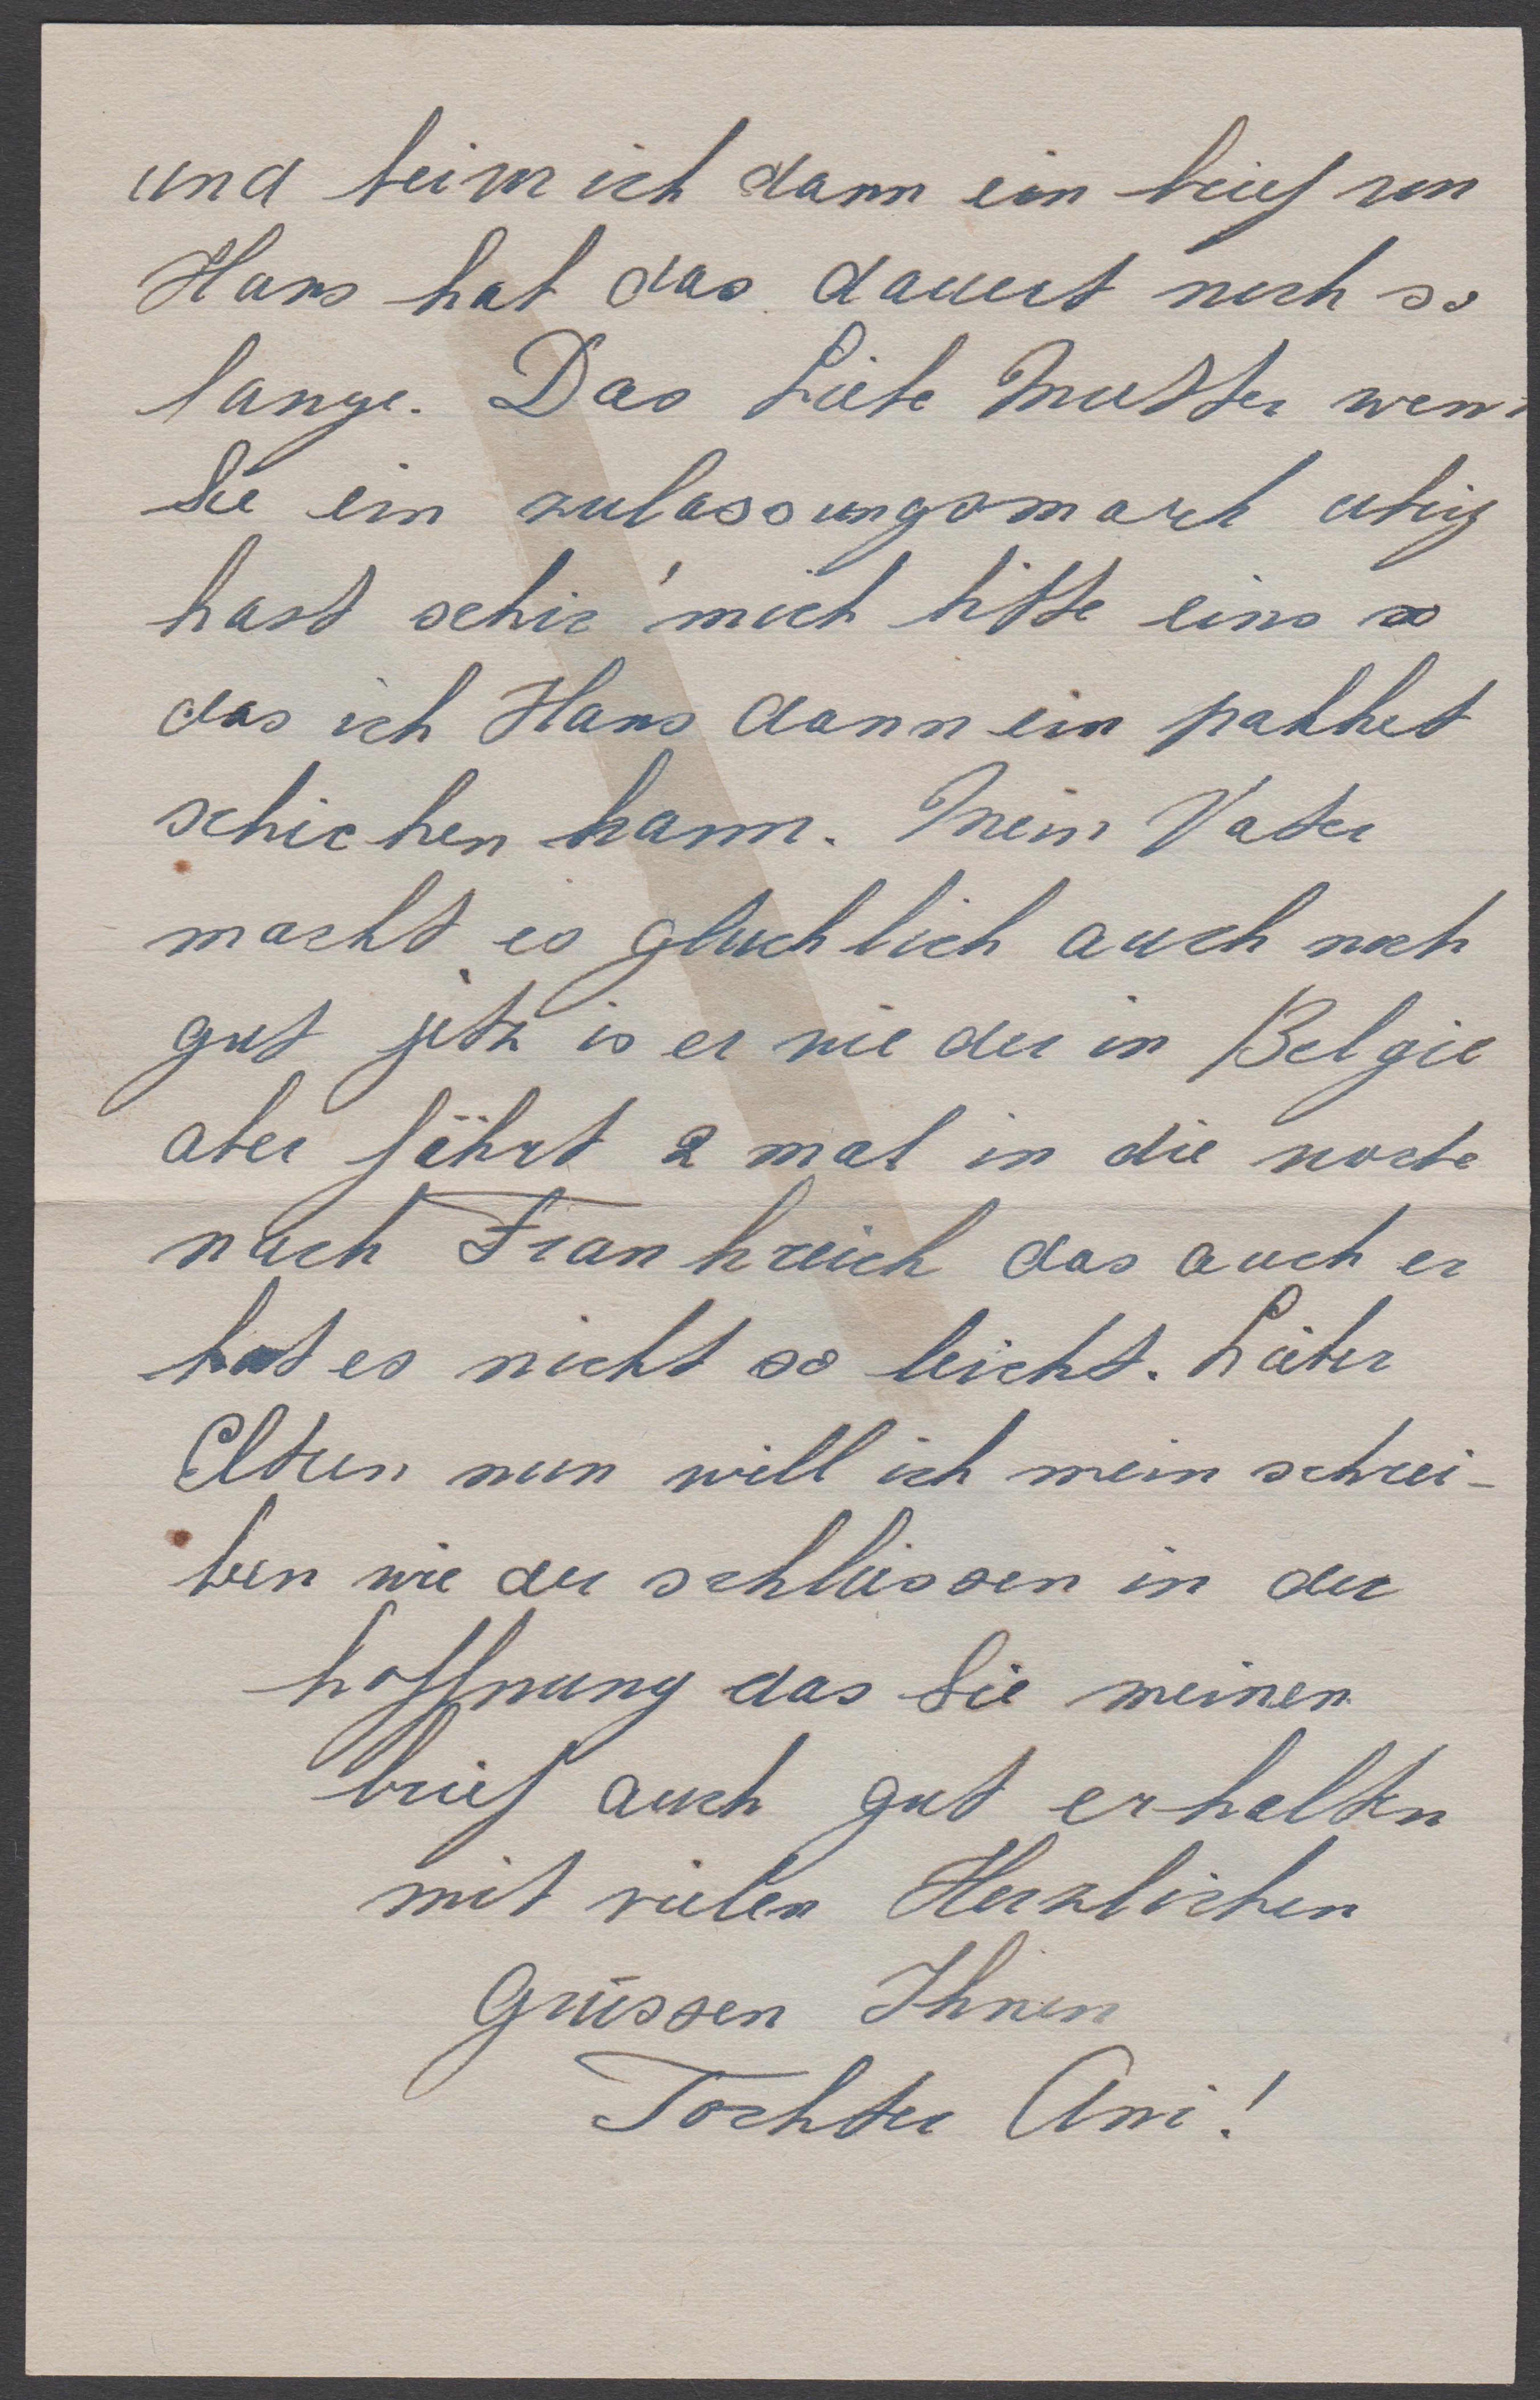 und beim ich dann ein brief von
Hans hat das dauert noch so
lange. Das Liebe Mutter wenn
Sie ein zulassungsmark ubig
hast schic' mich bitte eins so
das ich Hans dann ein pakket
schicken kann. Mein Vater
macht es glucklich auch noch
gut jetz is er wieder in Belgie
aber fährt 2 mal in die woche
nach Frankreich das auch er
hat es nicht so leicht. Lieber
Eltern nun will ich mein schrei-
ben wieder schliessen in der
hoffnung das Sie meinen
brief auch gut erhalten
mit vielen Herzlichen
Grüssen Ihnen
Tochter Ani!